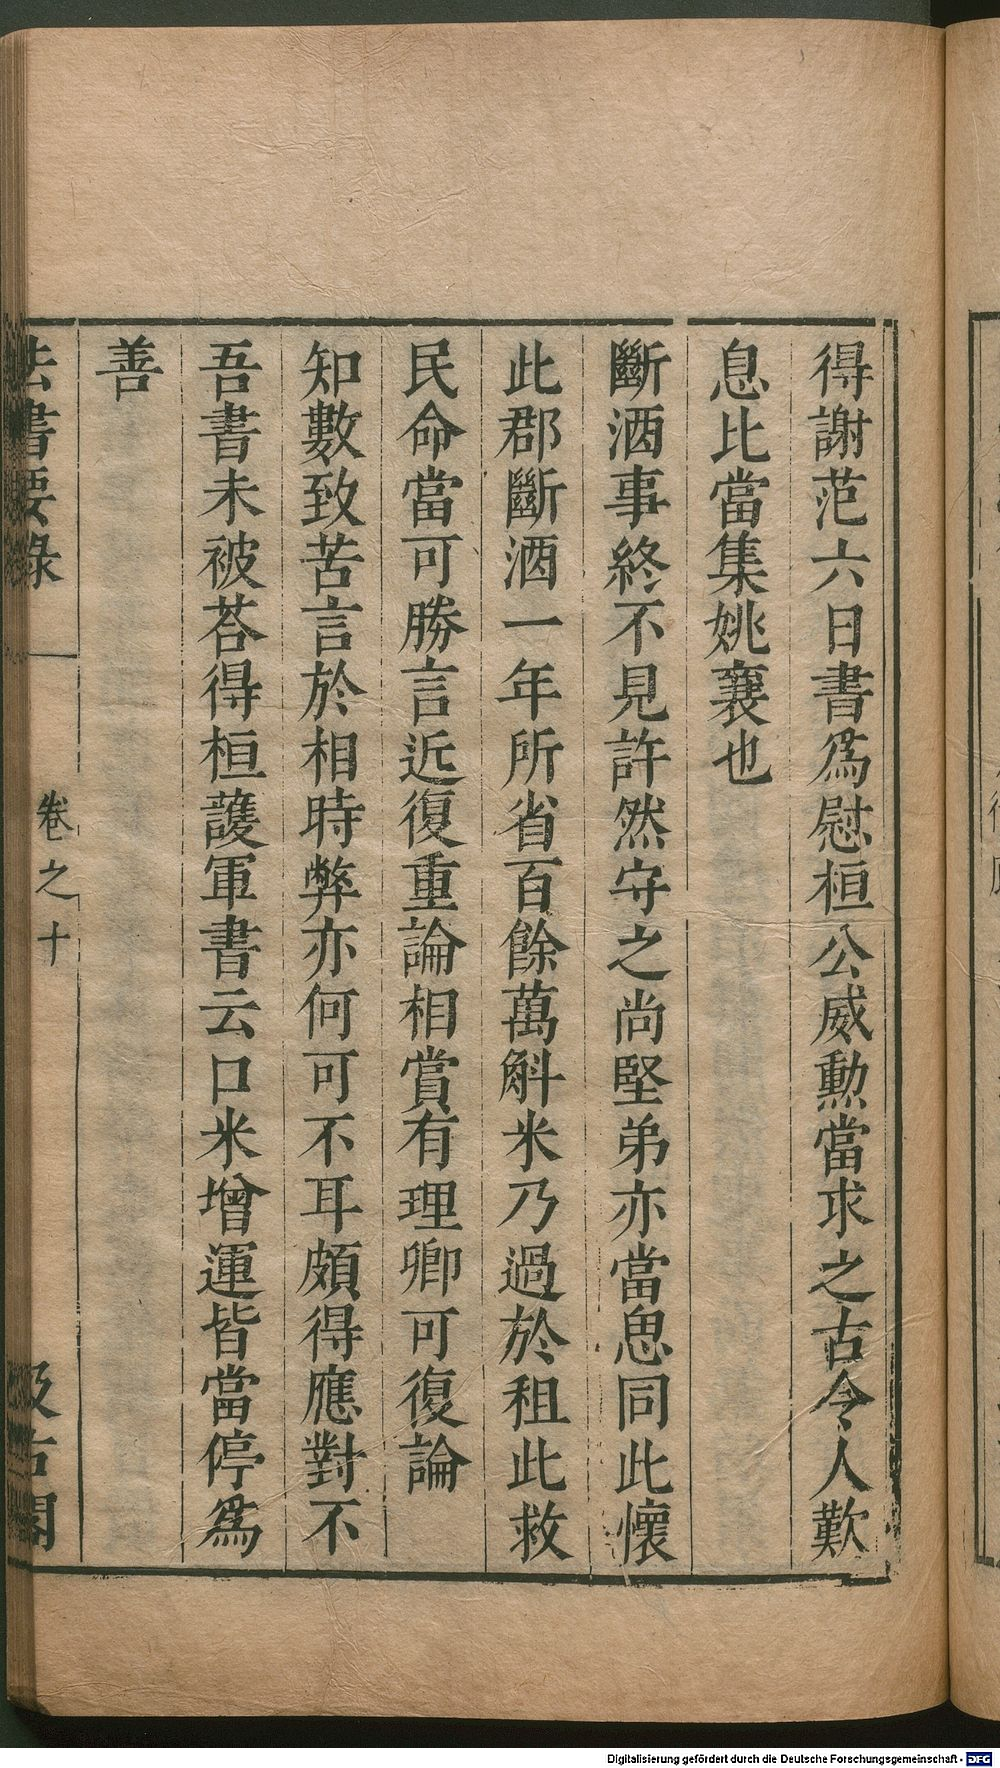 得謝范六日書爲慰桓公威勲當求之古今人歎
息比當集姚襄也
斷酒事終不見許然守之尚堅弟亦當思同此懷
此郡斷酒一年所省百餘萬斛米乃過於租此救
民命當可勝言近復重論相賞有理卿可復論
知數致苦言於相時弊亦何可不耳頗得應對不
吾書未被荅得桓護軍書云口米增運皆當停爲
善
法書要錄
卷之十
汲古閣
Digitalisierung gefördert durch die Deutsche Forschungsgemeinschaft - DFG